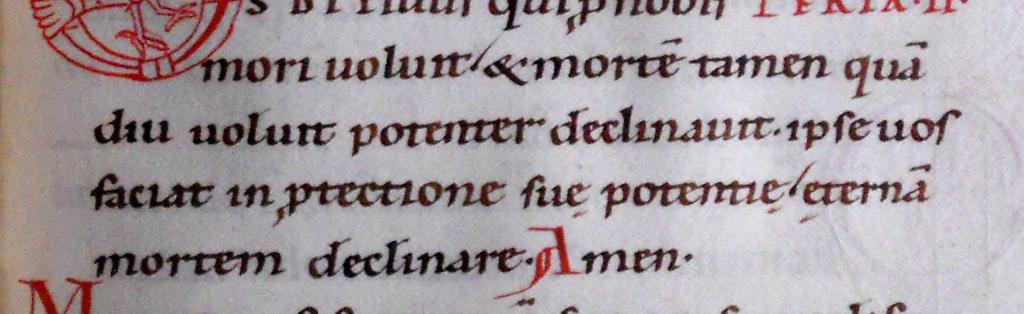 mori uoluit & mortē tamen quā
diu uoluit potenter declinauit. ipse uos
faciat in ꝓtectione suę potentię ęternā
mortem declinare. Amen.
M